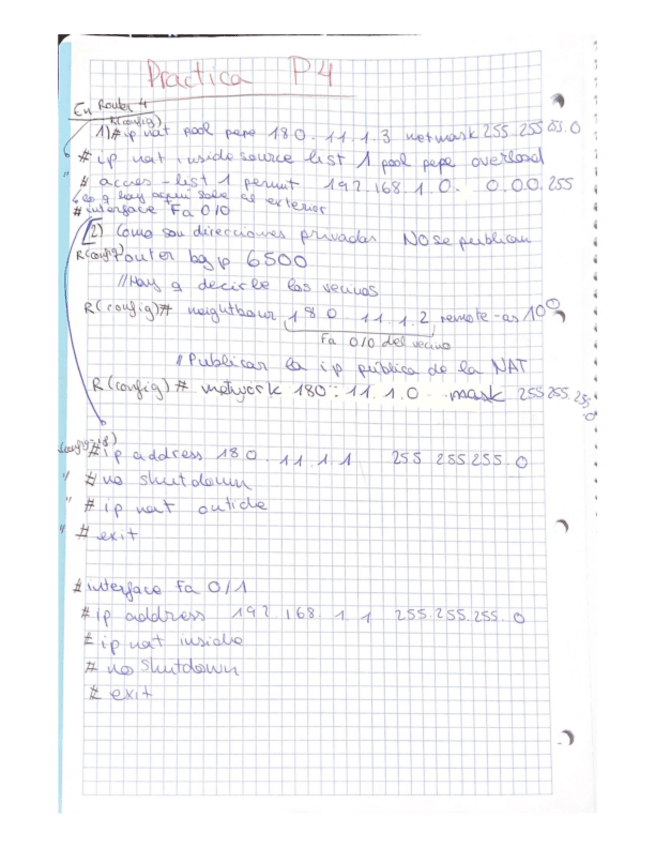 Practica P4
En Router 4
R(config)
1) # ip nat pool pepe 180.11.1.3 netmask 255.255.255.0
# ip nat inside source list 1 pool pepe overload
" # acces-list 1 permit 192.168.1.0. 0.0.0.255
lo q hay aqui sale al exterior
# interface Fa 0/0
2) Como son direcciones privadas NO se publican
R(config) router bgp 6500
//Hay q decirle los vecinos
R(config)# neightbour 180.11.1.2, remote-as 100
Fa 0/0 del vecino
//Publicar la ip pública de la NAT
R(config) # network 180.11.1.0 mask 255.255.255.0
# ip address 180.11.1.1 255.255.255.0
" # no shutdown
" # ip nat outide
" # exit
# interface Fa 0/1
# ip address 192.168.1.1 255.255.255.0
# ip nat inside
# no shutdown
# exit